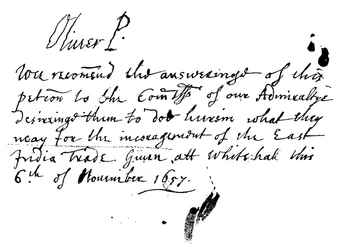 Oliver P.
Wee recomend the answeringe of this
peticon to the Comrs of our Admiraltye
desireinge them to doe herein what they
may for the incoragement of the East
India Trade Given att Whitehall this
6th of November 1657.